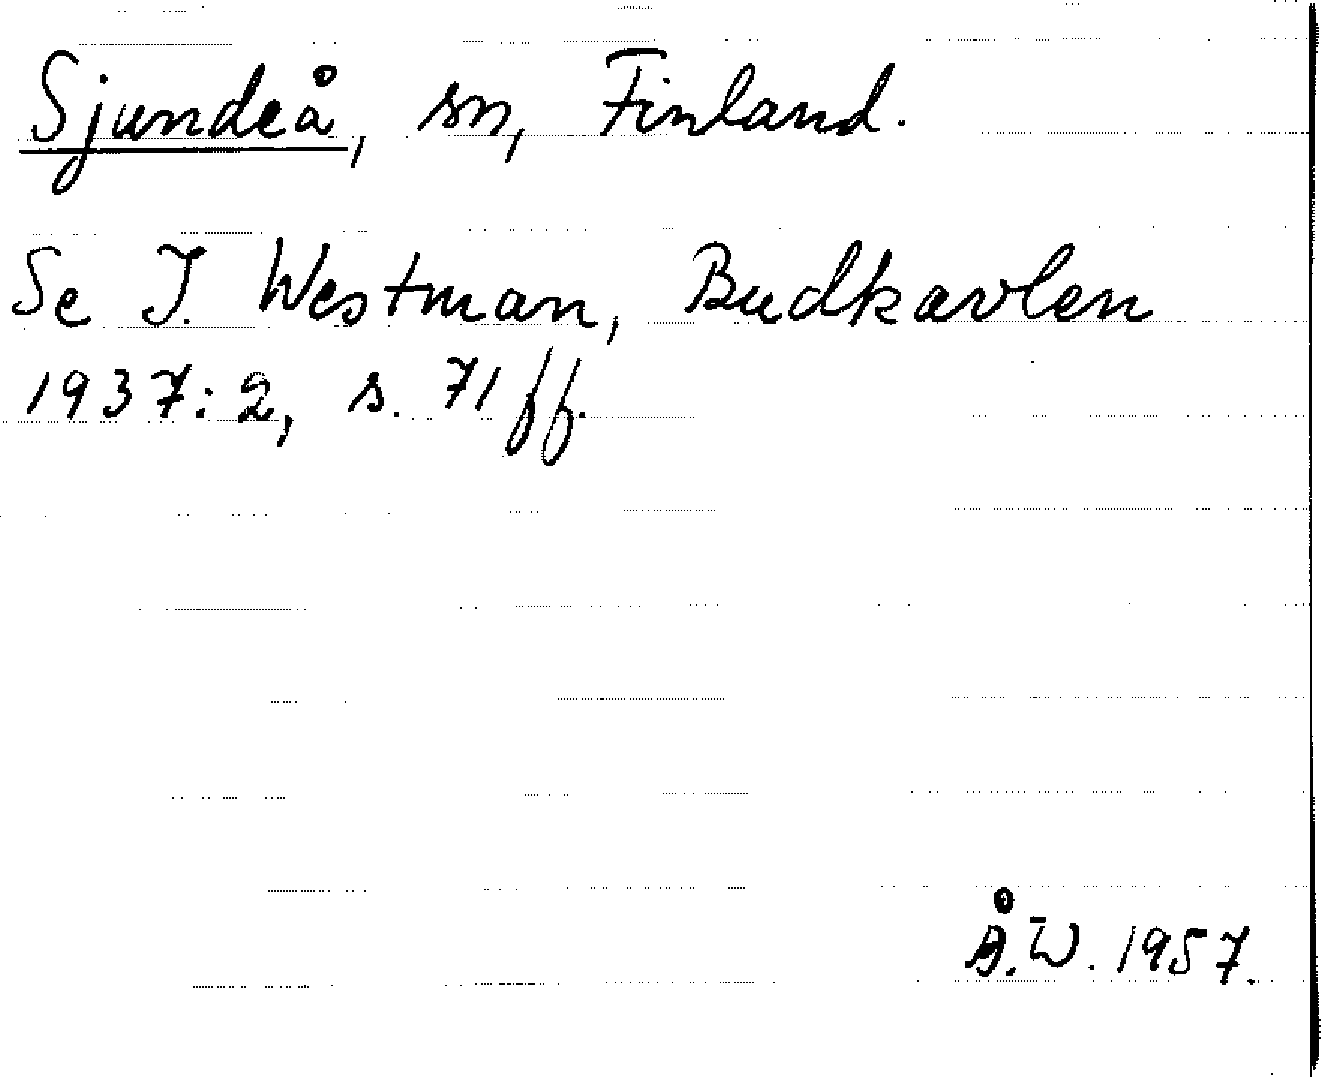 Sjundeå, sn, Finland.
Se I. Westman, Budkavlen
1937:2, s. 71 ff.
Å.W. 1957.